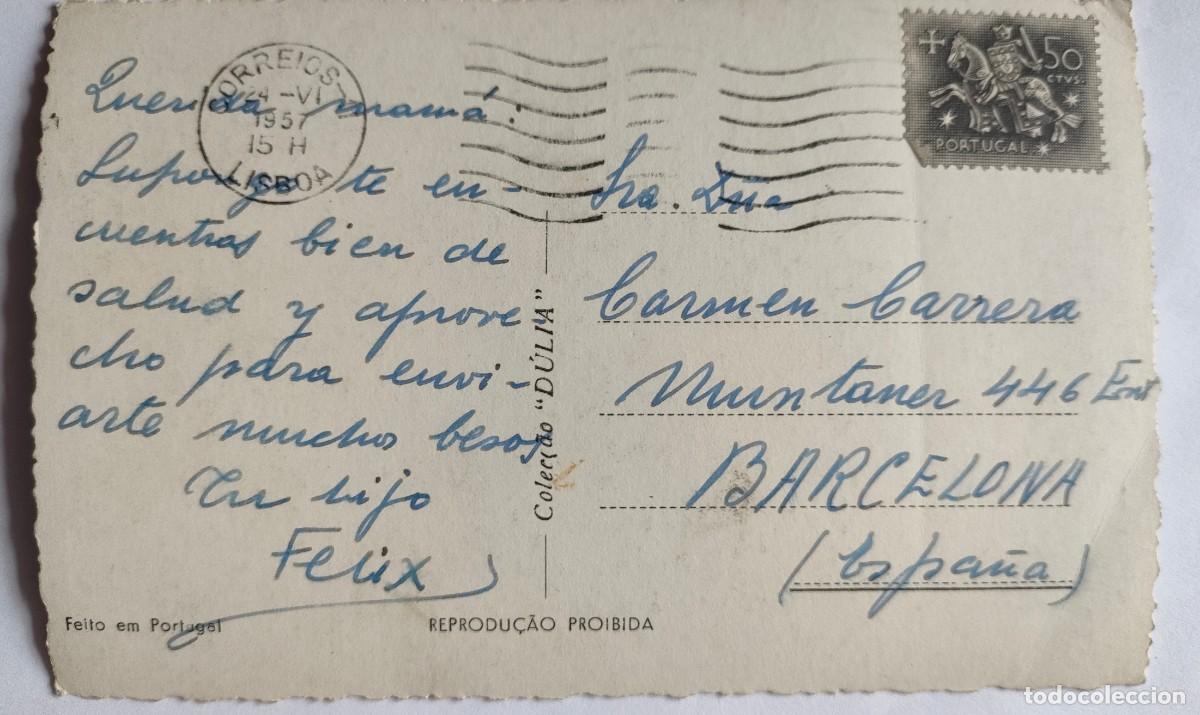 CORREIOS
24 -VI
1957
15 H
LISBOA
50
CTVS.
PORTUGAL
Querida mamá:
Supongo te en-
cuentras bien de
salud y aprove-
cho para envi-
arte muchos besos
Tu hijo
Felix
Sra. Dña
Carmen Carrera
Muntaner 446 Ent
BARCELONA
(España)
Colecção "DÚLIA"
Feito em Portugal
REPRODUÇÃO PROIBIDA
todocoleccion